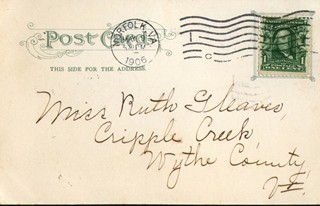 Post Card
THIS SIDE FOR THE ADDRESS.
NORFOLK, VA
1906
Miss Ruth Gleaves,
Cripple Creek,
Wythe County